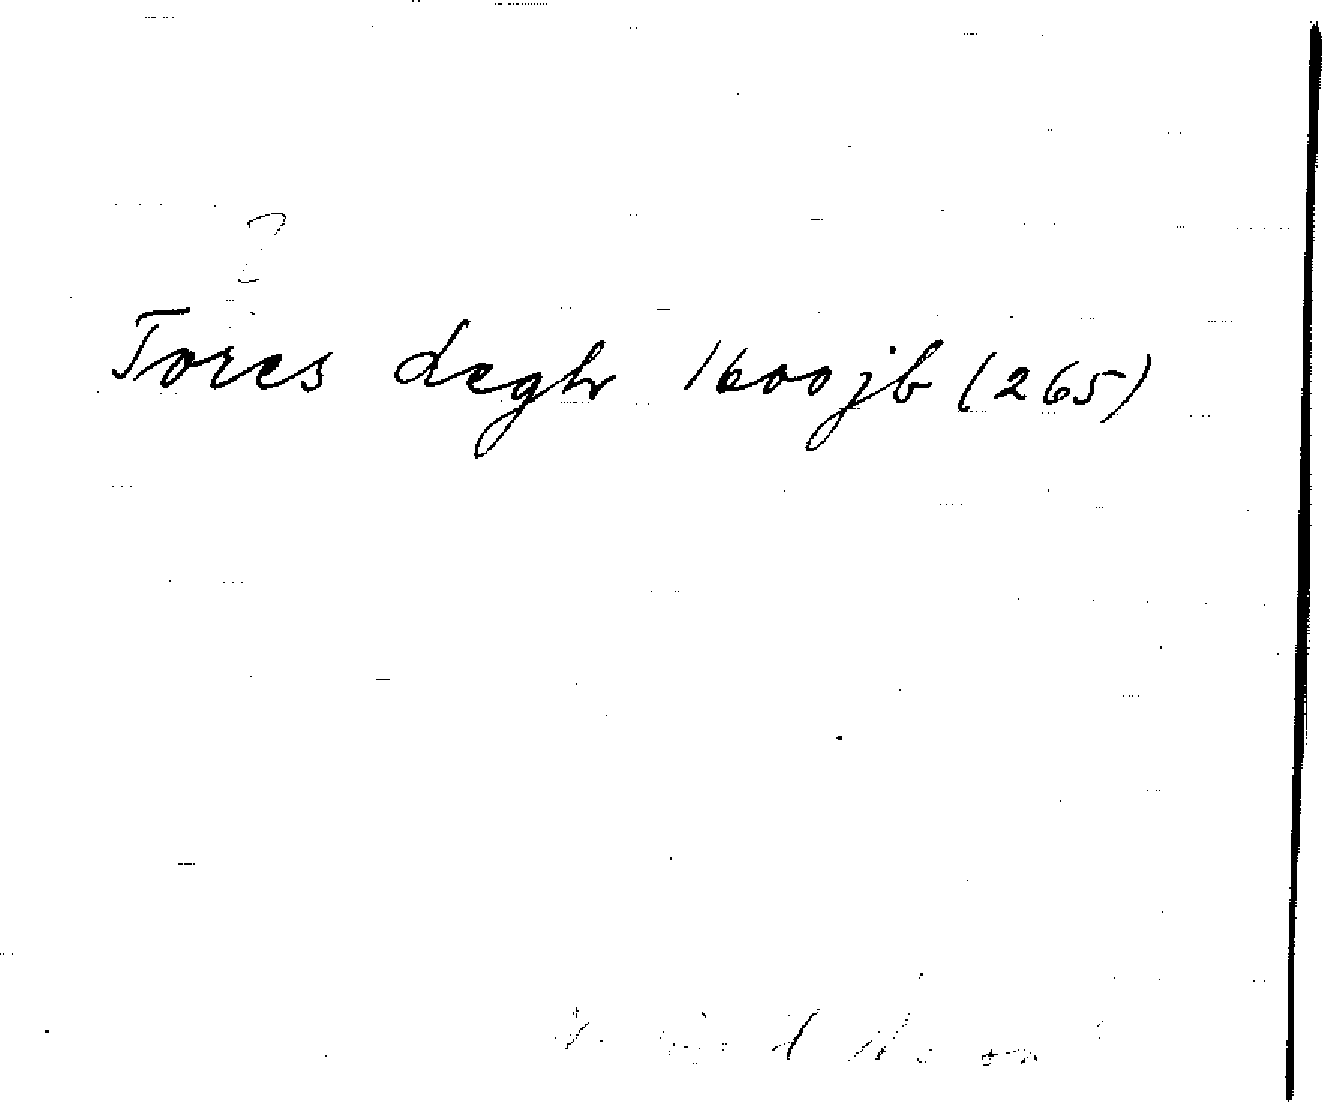 ?
Tores deghr 1600 jb (265)